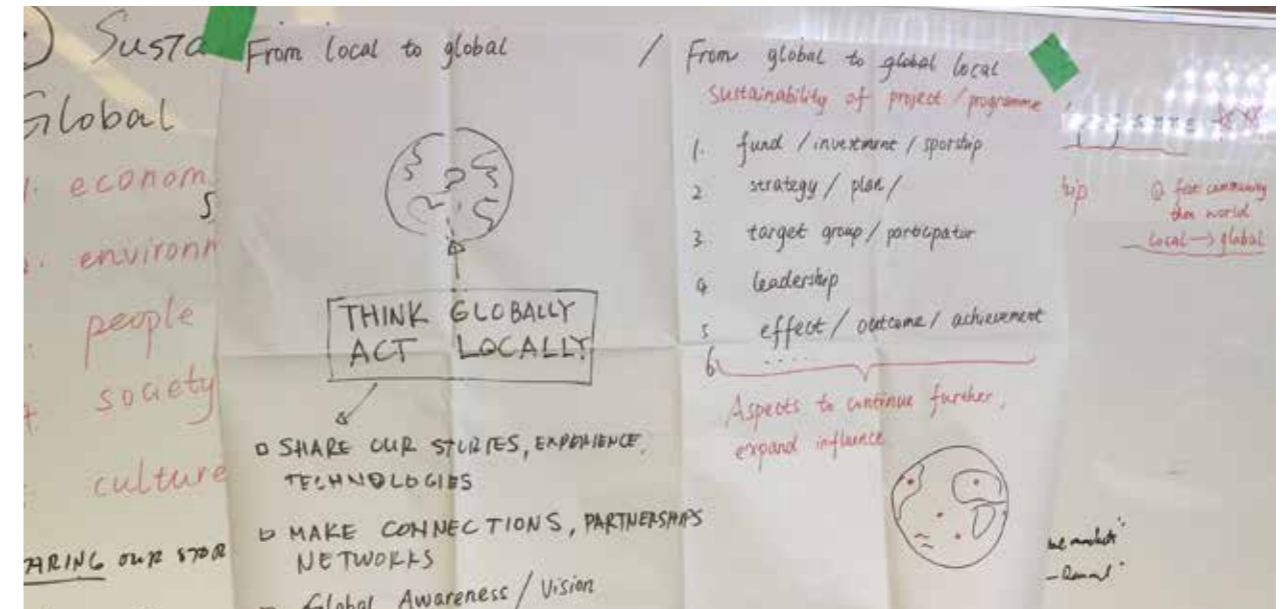 Susta
Global
1. econom
environm
people
society
culture
ARING OUR STOR
From local to global /
THINK GLOBALLY
ACT LOCALLY
SHARE OUR STORIES, EXPERIENCE,
TECHNOLOGIES
MAKE CONNECTIONS, PARTNERSHIPS
NETWORKS
Global Awareness / Vision
From global to global local
Sustainability of project / programme
1. fund / investment / sporship
2 strategy / plan /
3. target group / participator
4 leadership
5 effect / outcome / achievement
6 ....
Aspects to continue further,
expand influence
hip
community
world
Local → global